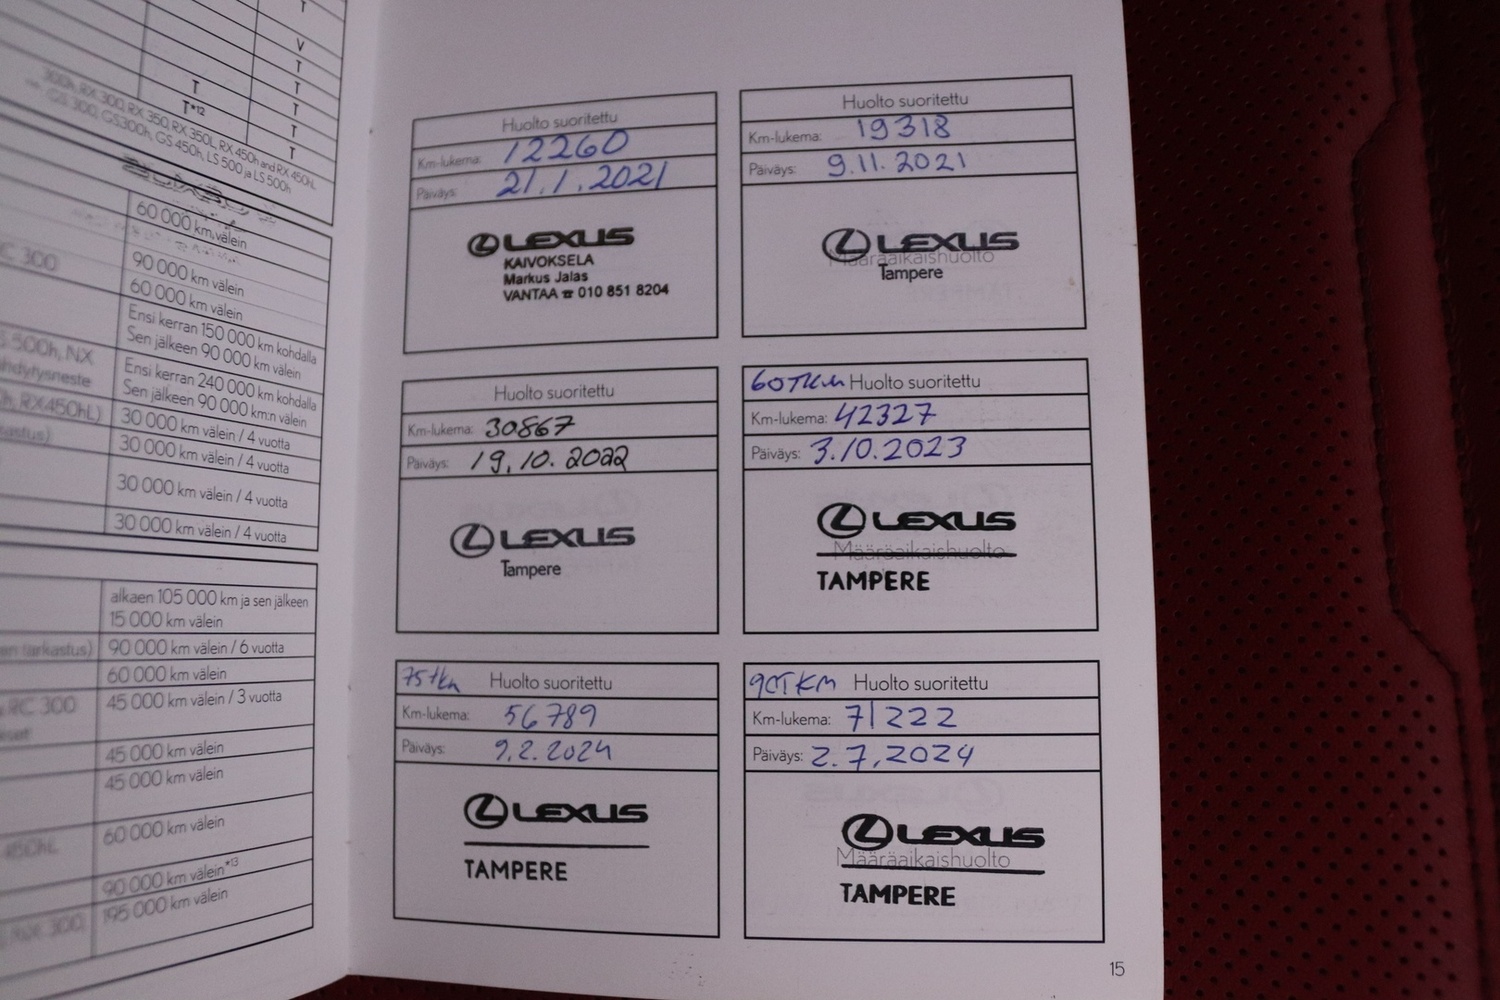 T
V
T
T
T
T
T*12
T
T
300h, RX 300, RX 350, RX 350L, RX 450h and RX 450hL
GS 300, GS300h, GS 450h, LS 500 ja LS 500h
60 000 km välein
90 000 km välein
RC 300
60 000 km välein
Ensi kerran 150 000 km kohdalla
Sen jälkeen 90 000 km välein
500h, NX
Ensi kerran 240 000 km kohdalla
Sen jälkeen 90 000 km:n välein
RX450hL)
30 000 km välein / 4 vuotta
30 000 km välein / 4 vuotta
30 000 km välein / 4 vuotta
30 000 km välein / 4 vuotta
alkaen 105 000 km ja sen jälkeen
15 000 km välein
en tarkastus)
90 000 km välein / 6 vuotta
60 000 km välein
RC 300
45 000 km välein / 3 vuotta
45 000 km välein
45 000 km välein
450hL
60 000 km välein
90 000 km välein*13
195 000 km välein
Huolto suoritettu
Km-lukema: 12260
Päiväys: 21.1.2021
LEXUS
KAIVOKSELA
Markus Jalas
VANTAA ☎ 010 851 8204
Huolto suoritettu
Km-lukema: 19318
Päiväys: 9.11.2021
LEXUS
Määräaikaishuolto
Tampere
Huolto suoritettu
Km-lukema: 30867
Päiväys: 19.10.2022
LEXUS
Tampere
60TKM Huolto suoritettu
Km-lukema: 42327
Päiväys: 3.10.2023
LEXUS
Määräaikaishuolto
TAMPERE
75tkm Huolto suoritettu
Km-lukema: 56789
Päiväys: 9.2.2024
LEXUS
TAMPERE
90TKM Huolto suoritettu
Km-lukema: 71222
Päiväys: 2.7.2024
LEXUS
Määräaikaishuolto
TAMPERE
15